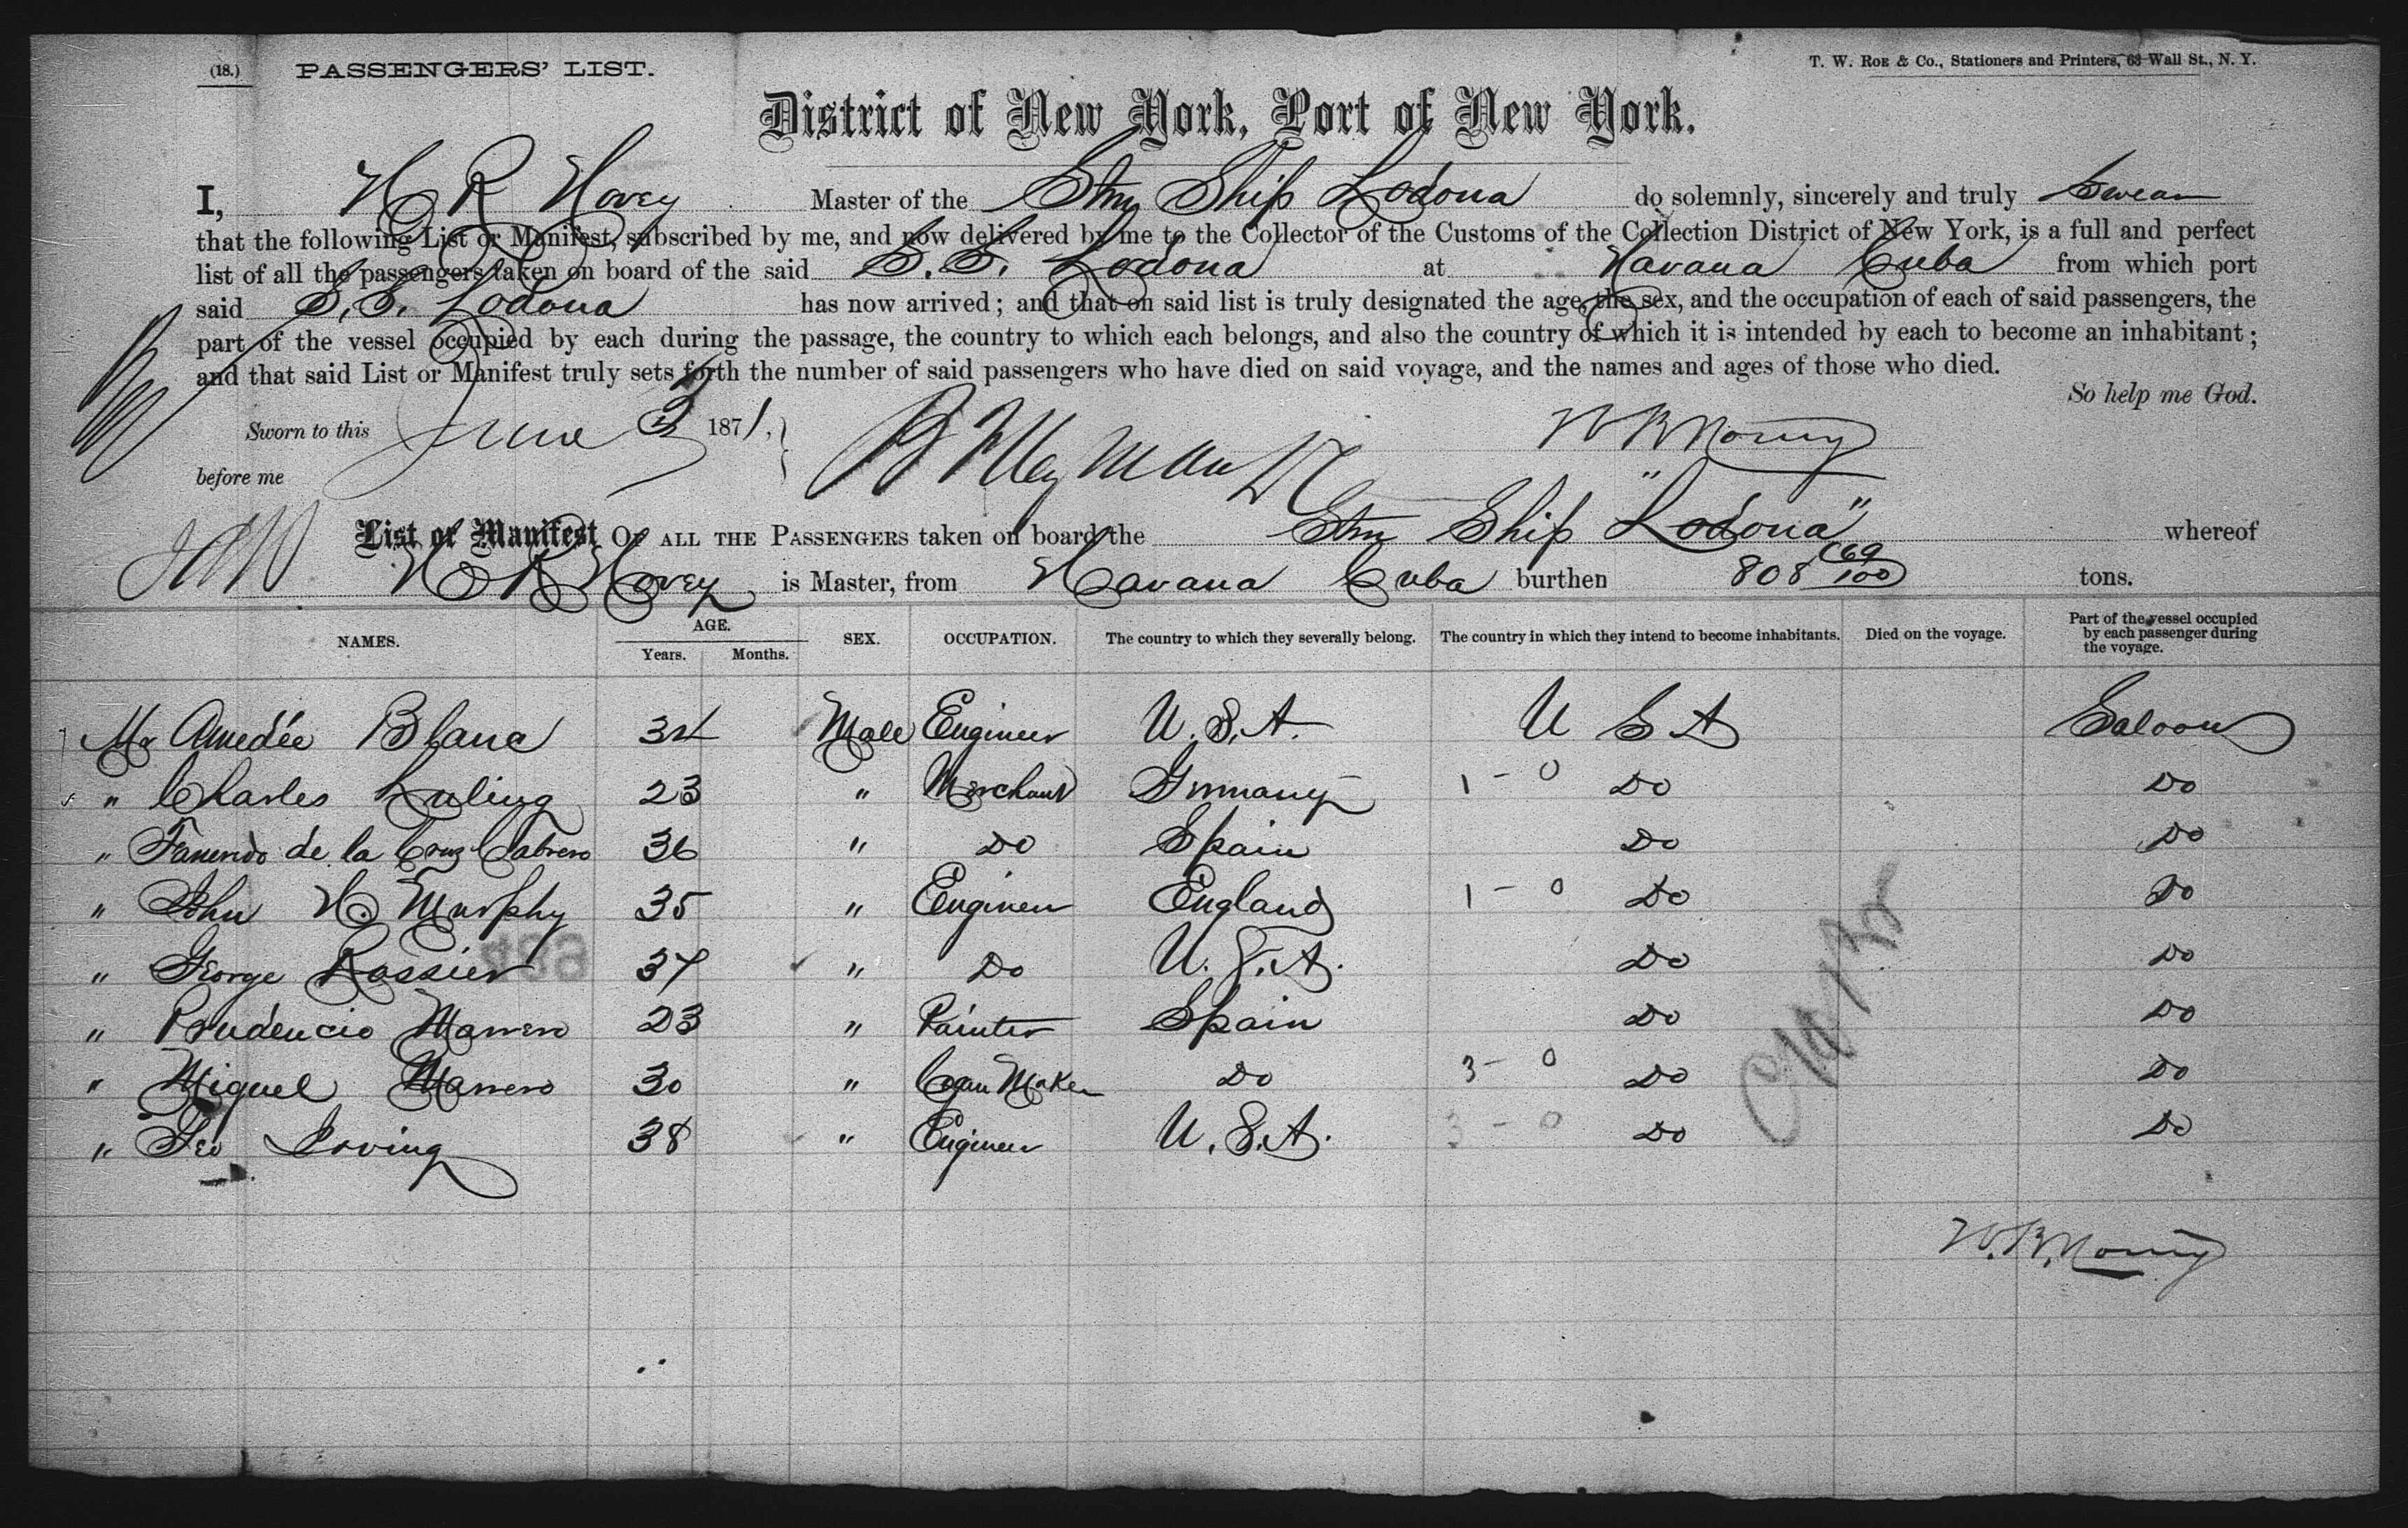 (18.) PASSENGERS' LIST. T. W. Roe & Co., Stationers and Printers, 63 Wall St., N. Y.
District of New York, Port of New York.
I, H R Hovey Master of the Stm Ship Lodona do solemnly, sincerely and truly Swear
that the following List or Manifest, subscribed by me, and now delivered by me to the Collector of the Customs of the Collection District of New York, is a full and perfect
list of all the passengers taken on board of the said S. S. Lodona at Havana Cuba from which port
said S. S. Lodona has now arrived; and that on said list is truly designated the age, the sex, and the occupation of each of said passengers, the
part of the vessel occupied by each during the passage, the country to which each belongs, and also the country of which it is intended by each to become an inhabitant;
and that said List or Manifest truly sets forth the number of said passengers who have died on said voyage, and the names and ages of those who died.
So help me God.
Sworn to this June 3 1871,
before me
List or Manifest Of all the Passengers taken on board the Stm Ship "Lodona" whereof
H R Hovey is Master, from Havana Cuba burthen 808 69/100 tons.
NAMES. AGE. Years. Months. SEX. OCCUPATION. The country to which they severally belong. The country in which they intend to become inhabitants. Died on the voyage. Part of the vessel occupied by each passenger during the voyage.
Mr Amedée Blanc 34 Male Engineer U. S. A. U S A Saloon
" Charles Luling 23 " Merchant Germany 1 - 0 Do Do
" de la Cruz Cabrero 36 " Do Spain Do Do
" John H. Murphy 35 " Engineer England 1 - 0 Do Do
" George Rossier 37 " Do U. S. A. Do Do
" Prudencio Marrero 23 " Painter Spain Do Do
" Miguel Marrero 30 " Cigar Maker Do 3 - 0 Do Do
" Geo Irving 38 " Engineer U. S. A. 3 - 0 Do Do